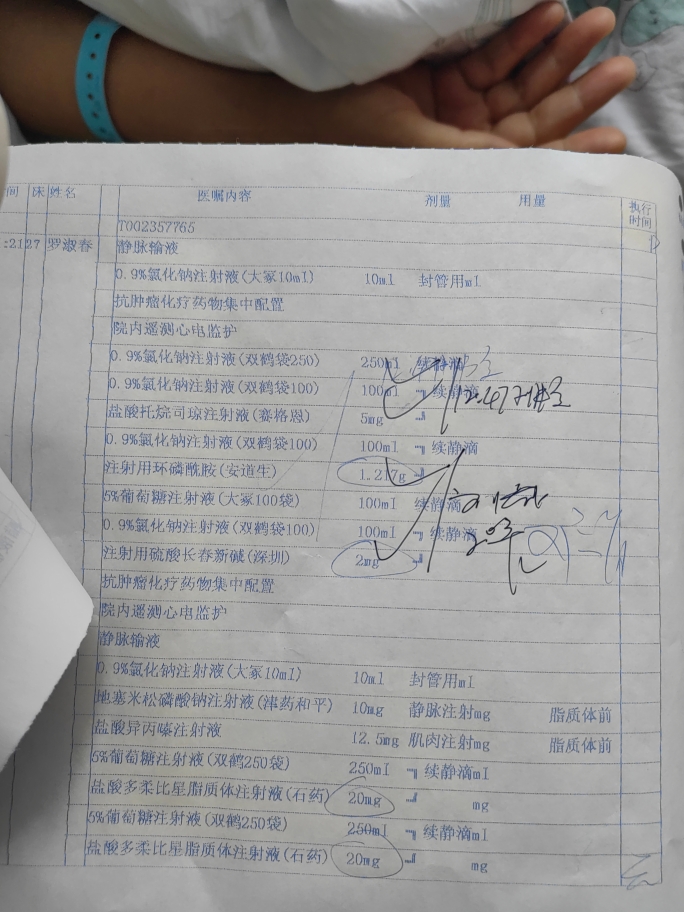 间 床 姓名 医嘱内容 剂量 用量 执行时间
T002357765
:21 27 罗淑春 静脉输液
0.9%氯化钠注射液(大冢10ml) 10ml 封管用ml
抗肿瘤化疗药物集中配置
院内遥测心电监护
0.9%氯化钠注射液(双鹤袋250) 250ml 续静滴
0.9%氯化钠注射液(双鹤袋100) 100ml ┓ 续静滴
盐酸托烷司琼注射液(赛格恩) 5mg ┛
0.9%氯化钠注射液(双鹤袋100) 100ml ┓ 续静滴
注射用环磷酰胺(安道生) 1.217g ┛
5%葡萄糖注射液(大冢100袋) 100ml 续静滴
0.9%氯化钠注射液(双鹤袋100) 100ml ┓ 续静滴
注射用硫酸长春新碱(深圳) 2mg ┛
抗肿瘤化疗药物集中配置
院内遥测心电监护
静脉输液
0.9%氯化钠注射液(大冢10ml) 10ml 封管用ml
地塞米松磷酸钠注射液(津药和平) 10mg 静脉注射mg 脂质体前
盐酸异丙嗪注射液 12.5mg 肌肉注射mg 脂质体前
5%葡萄糖注射液(双鹤250袋) 250ml ┓ 续静滴ml
盐酸多柔比星脂质体注射液(石药) 20mg ┛ mg
5%葡萄糖注射液(双鹤250袋) 250ml ┓ 续静滴ml
盐酸多柔比星脂质体注射液(石药) 20mg ┛ mg